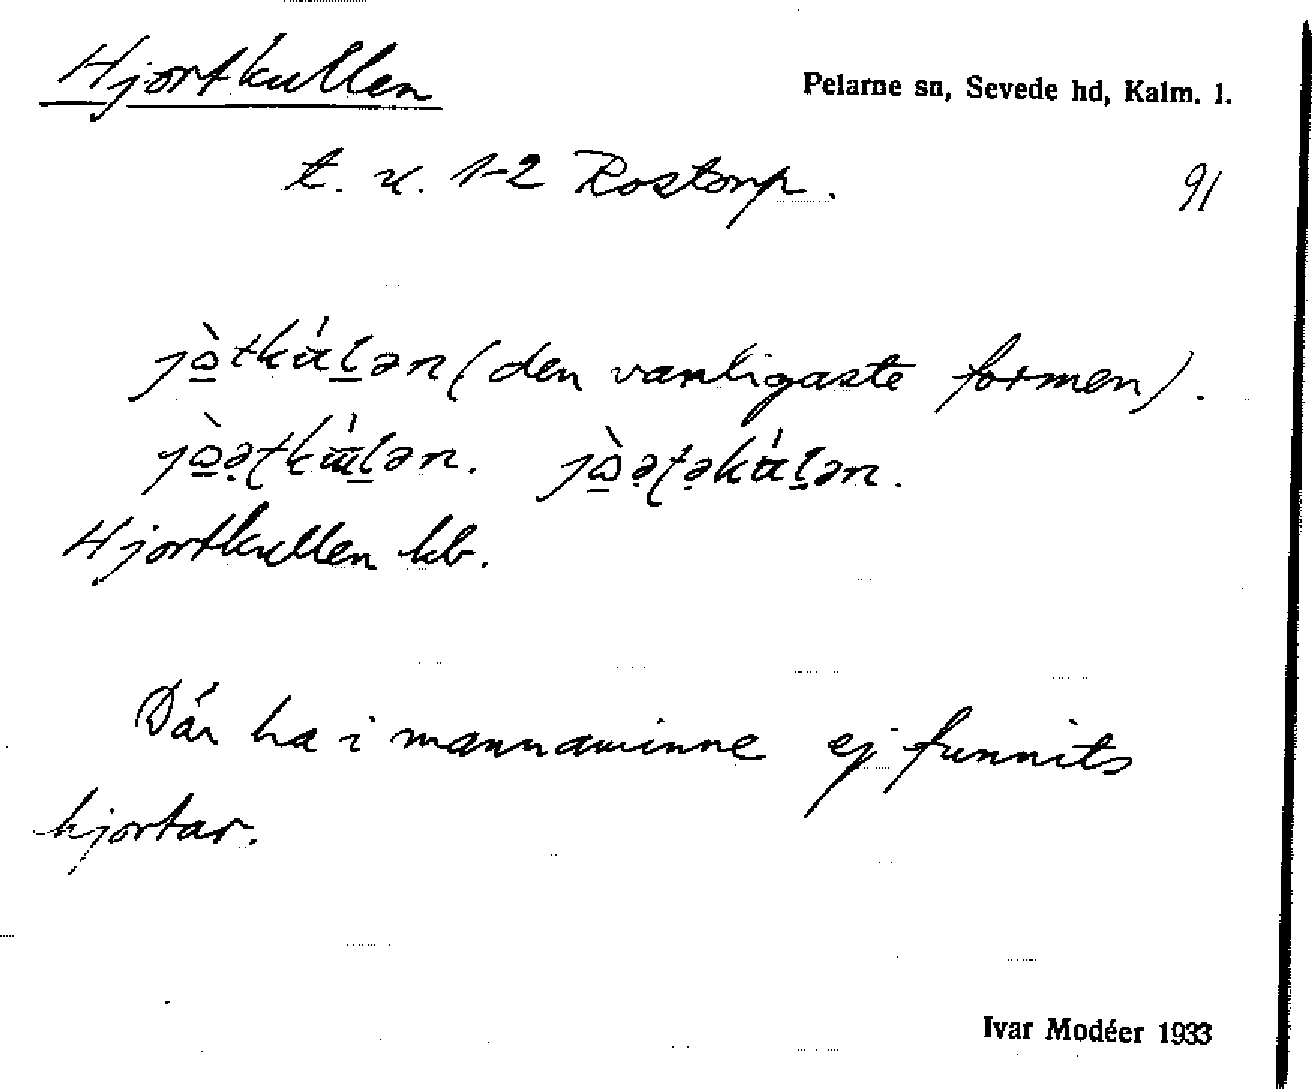 Hjortkullen
Pelarne sn, Sevede hd, Kalm. l.
t. u. 1-2 Rostorp.
91
(den vanligaste formen).
Hjortkullen kb.
Där ha i mannaminne ej funnits
hjortar.
Ivar Modéer 1933